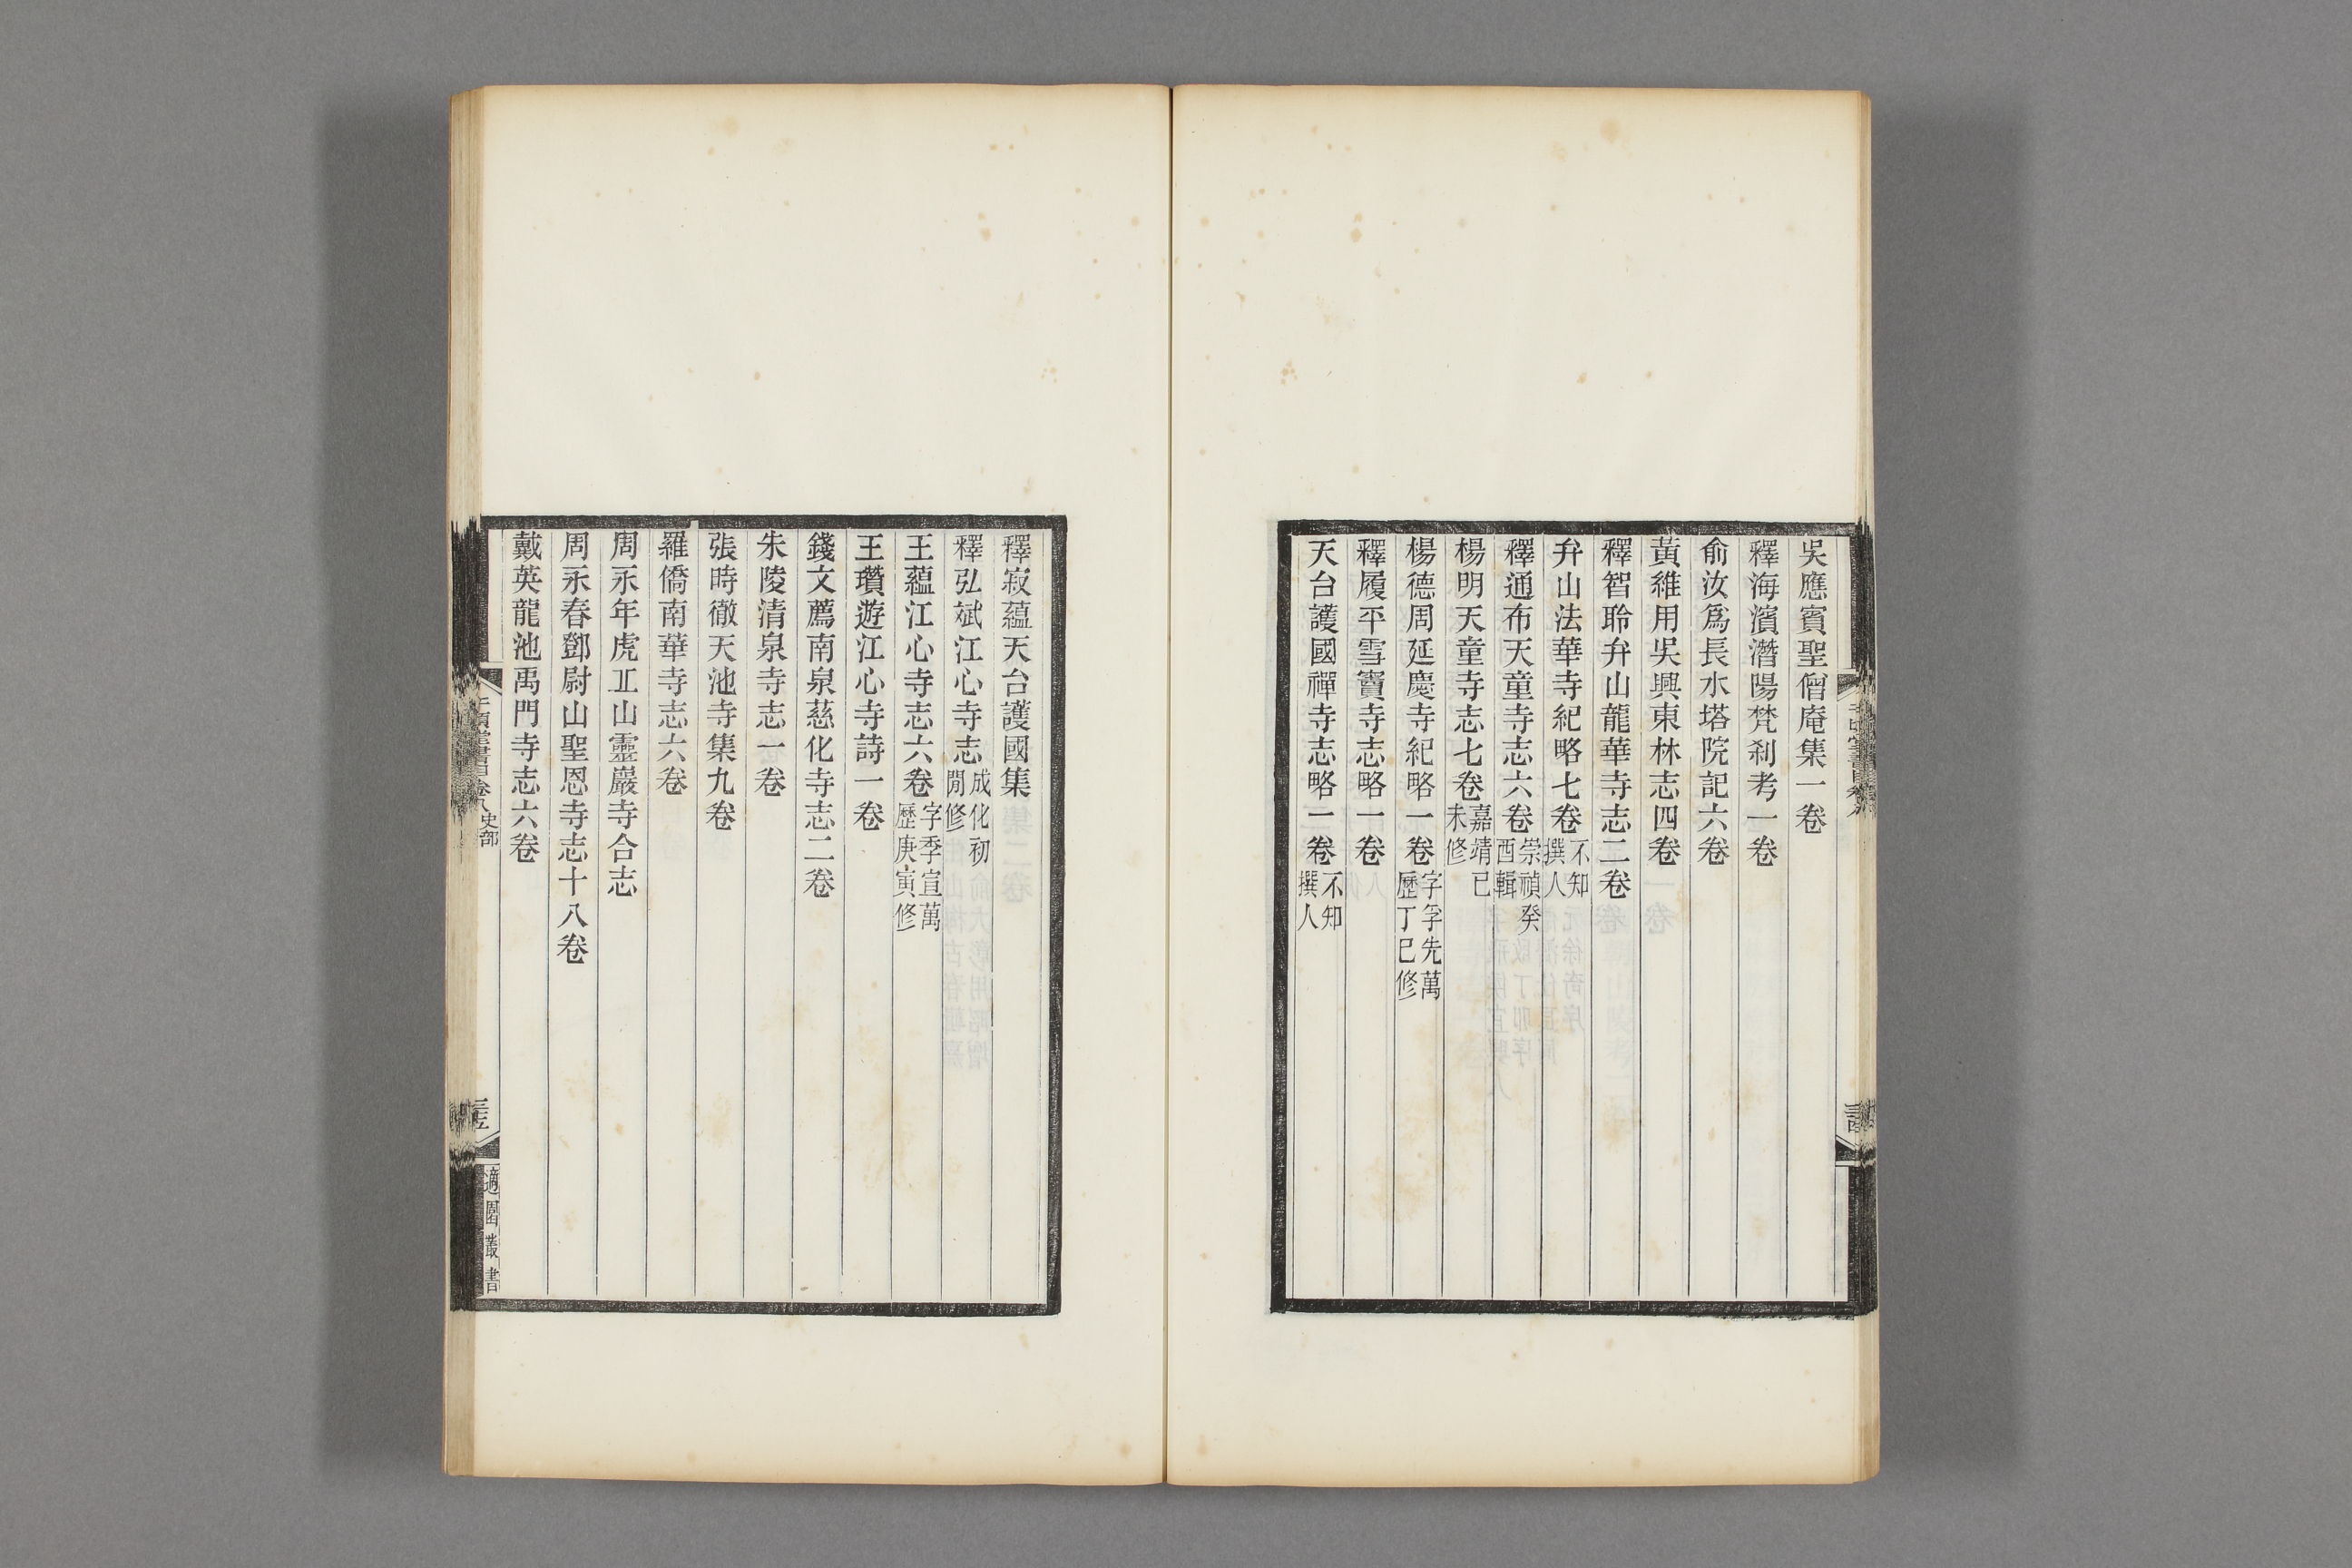 吳應賓聖僧庵集一卷
釋海濱濳陽梵刹考一卷
俞汝爲長水塔院記六卷
黃維用吳興東林志四卷
釋智聆弁山龍華寺志二卷
弁山法華寺紀略七卷不知撰人
釋通布天童寺志六卷崇禎癸酉輯
楊明天童寺志七卷嘉靖己未修
楊德周延慶寺紀略一卷字孚先萬歷丁巳修
釋履平雪竇寺志略一卷
天台護國禪寺志略一卷不知撰人
釋寂蘊天台護國集
釋弘斌江心寺志成化初閒修
王蘊江心寺志六卷字季宣萬歷庚寅修
王瓚遊江心寺詩一卷
錢文薦南泉慈化寺志二卷
朱陵清泉寺志一卷
張時徹天池寺集九卷
羅僑南華寺志六卷
周永年虎丘山靈巖寺合志
周永春鄧尉山聖恩寺志十八卷
戴英龍池禹門寺志六卷
千頃堂書目卷八史部
適園叢書